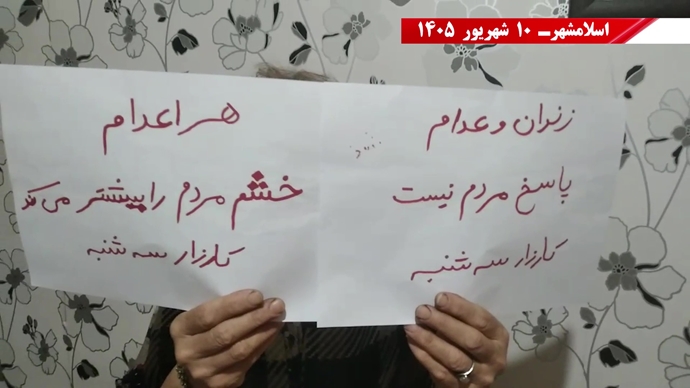 اسلامشهرـ ۱۰ شهریور ۱۴۰۵
زندان و عدام
پاسخ مردم نیست
کارزار سه شنبه
هر اعدام
خشم مردم را بیشتر می کند
کارزار سه شنبه